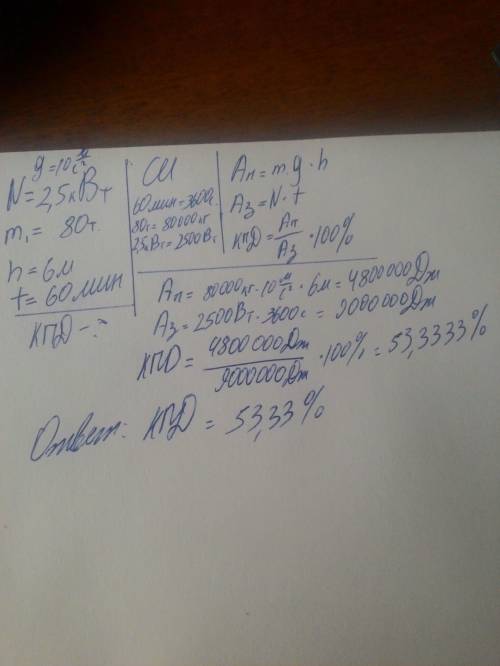 g = 10 м/с²
N = 2,5 кВт
m₁ = 80т.
h = 6м
t = 60мин
КПД - ?
СИ
60мин = 3600с
80т = 80000кг
2,5кВт = 2500Вт
Aп = m·g·h
Aз = N·t
КПД = Aп/Aз · 100%
Aп = 80000кг · 10 м/с² · 6м = 4800000Дж
Aз = 2500Вт · 3600с = 9000000Дж
КПД = 4800000Дж/9000000Дж · 100% = 53,3333%
Ответ: КПД = 53,33%